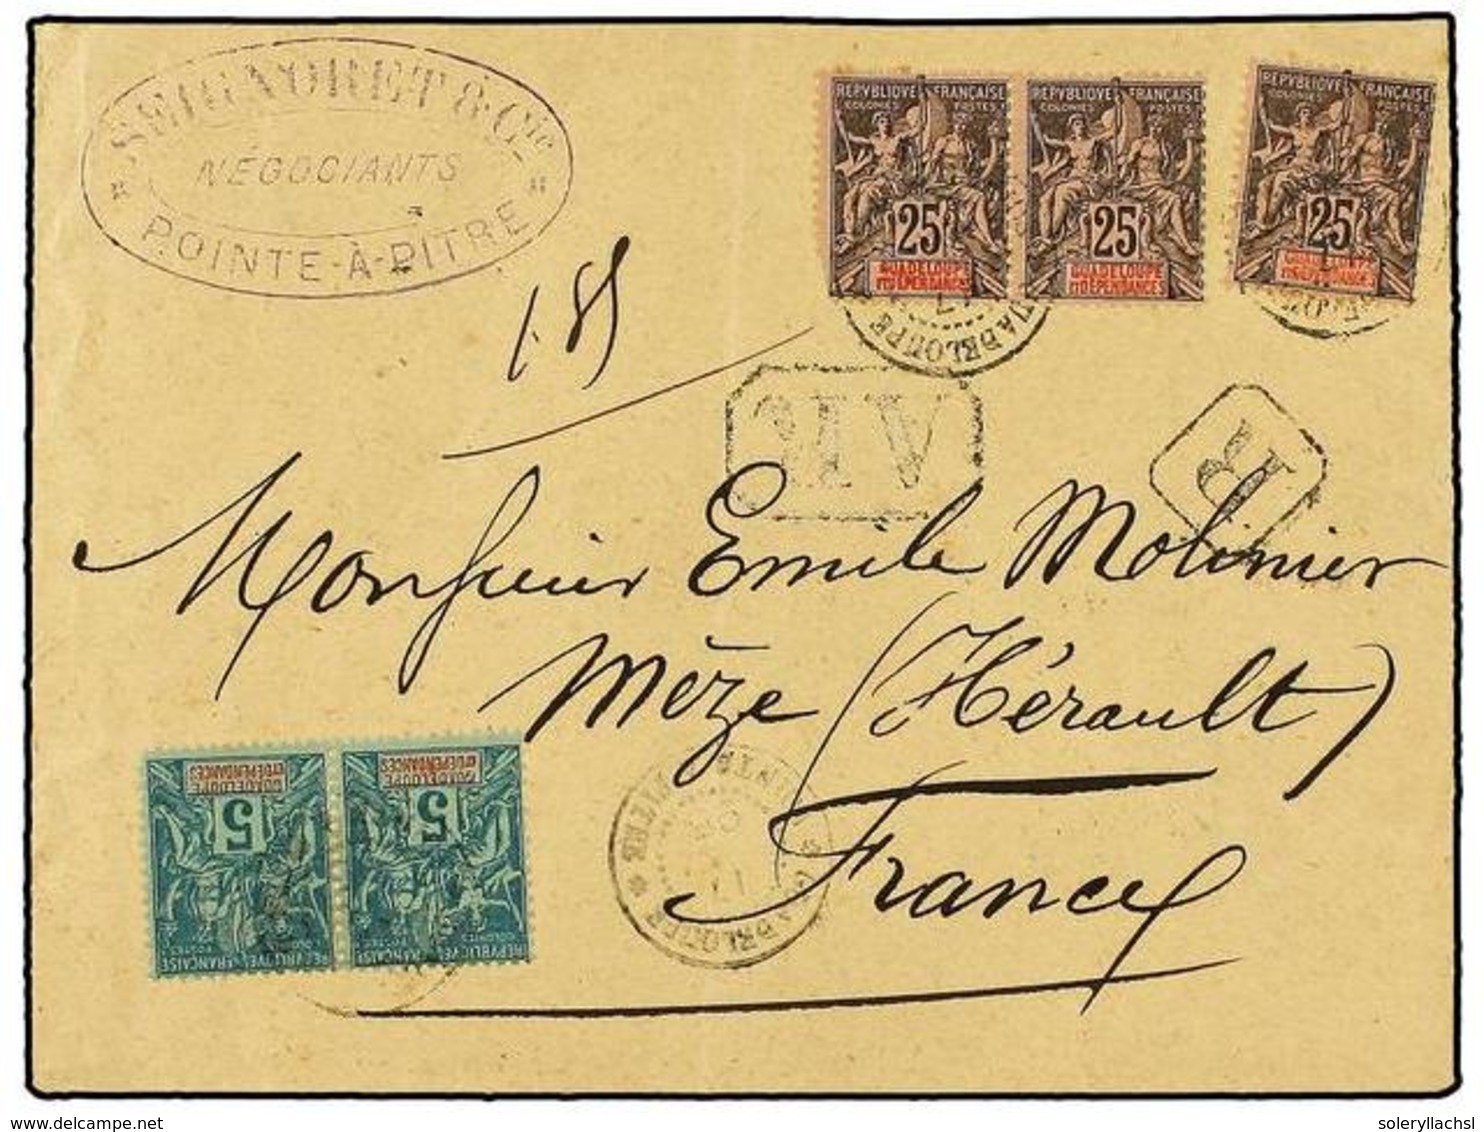 SEIGNORET & Cie
NÉGOCIANTS
POINTE-À-PITRE
REPVBLIQVE FRANÇAISE
COLONIES POSTES
25
GUADELOUPE
ET DÉPENDANCES
REPVBLIQVE FRANÇAISE
COLONIES POSTES
25
GUADELOUPE
ET DÉPENDANCES
REPVBLIQVE FRANÇAISE
COLONIES POSTES
25
GUADELOUPE
ET DÉPENDANCES
GUADELOUPE
185
R
Monsieur Emile Molinier
Mèze (Hérault)
France
GUADELOUPE
ET DÉPENDANCES
5
COLONIES POSTES
REPVBLIQVE FRANÇAISE
GUADELOUPE
ET DÉPENDANCES
5
COLONIES POSTES
REPVBLIQVE FRANÇAISE
POINTE A PITRE
GUADELOUPE
soleryllachsl